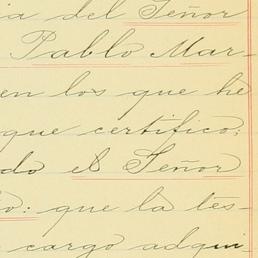 ia del Señor
Pablo Mar-
en los que he
que certifico:
do el Señor
lo: que la tes-
cargo adqui-